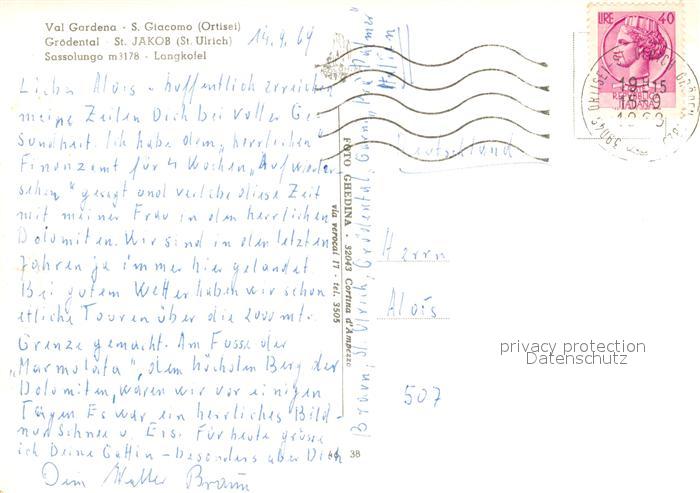 Val Gardena - S. Giacomo (Ortisei)
Grödental - St. JAKOB (St. Ulrich)
Sassolungo m3178 - Langkofel
14.9.69
Lieber Alois - hoffentlich erreichen
meine Zeilen Dich bei voller Ge-
sundheit. Ich habe dem „herrlichen"
Finanzamt für 4 Wochen „Aufwieder-
sehen" gesagt und verlebe diese Zeit
mit meiner Frau in den herrlichen
Dolomiten. Wir sind in den letzten
Jahren ja immer hier gelandet.
Bei gutem Wetter haben wir schon
etliche Touren über die 2000 mt.
Grenze gemacht. Am Fusse der
„Marmolata", dem höchsten Berg der
Dolomiten, waren wir vor einigen
Tagen. Es war ein herrliches Bild -
nur Schnee u. Eis. Für heute grüsse
ich Deine Gattin - besonders aber Dich
Dein Walter Braun
FOTO GHEDINA - 32043 Cortina d'Ampezzo
via verocai 17 - tel. 3505
38
Braun i/ St. Ulrich i/ Grödental
LIRE 40
REPVBBLICA
ITALIANA
39046 ORTISEI
19-15
15.9
1969
Deutschland
Herrn
Alois
507
privacy protection
Datenschutz